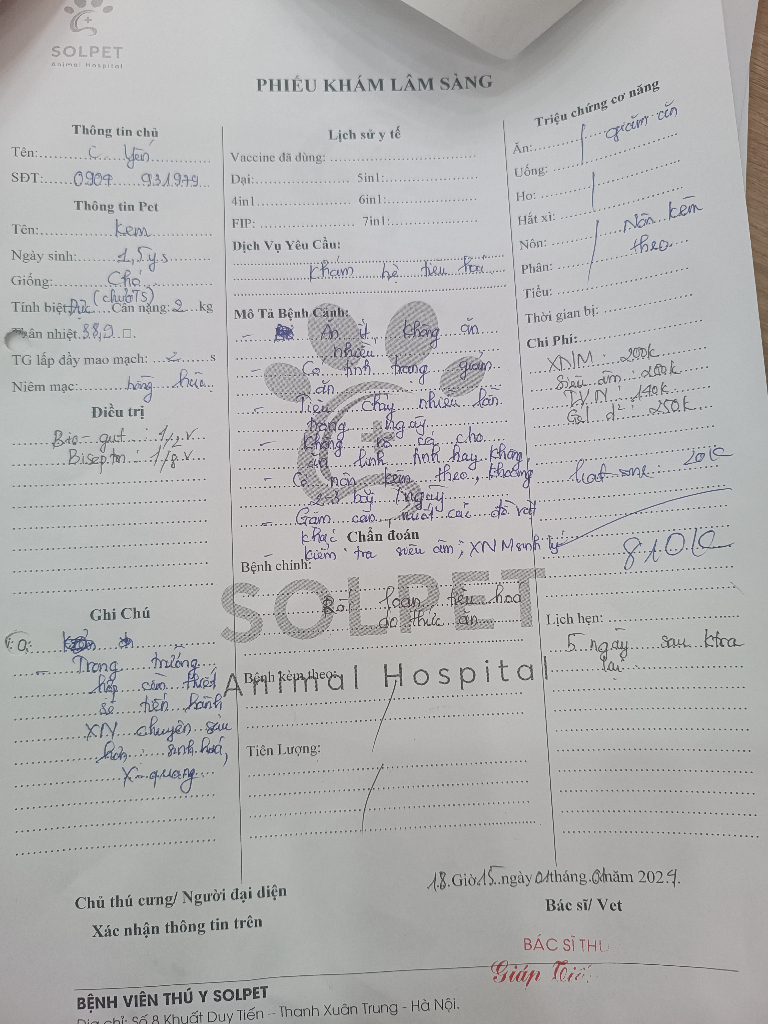 SOLPET
Animal Hospital
PHIẾU KHÁM LÂM SÀNG
Thông tin chủ
Tên: C. Yến
SĐT: 0904 931979
Thông tin Pet
Tên: Kem
Ngày sinh: 1,5 ys
Giống: Chó
(chưa TS)
Tính biệt: Đực Cân nặng: 2 kg
ân nhiệt 38,9
TG lấp đầy mao mạch: 2 s
Niêm mạc: hồng hào
Điều trị
Bio-gut: 1/2 v.
Biseptin: 1/8 v.
Ghi Chú
- Trong trường
hợp cần thiết
sẽ tiến hành
XN chuyên sâu
hơn: sinh hoá,
X-quang
Lịch sử y tế
Vaccine đã dùng:
Dại: 5in1:
4in1 6in1:
FIP: 7in1:
Dịch Vụ Yêu Cầu:
Khám hệ tiêu hoá
Mô Tả Bệnh Cảnh:
- Ăn ít, không ăn
nhiều
- Có tình trạng giảm
ăn
- Tiêu chảy nhiều lần
trong ngày
- Không cho
ăn linh tinh hay không
- Có nôn kèm theo, khoảng
/ngày
- Gặm cắn, nuốt các đồ vật
khác
Chẩn đoán
- Kiểm tra siêu âm, XNM sinh lý
Bệnh chính:
Rối loạn tiêu hoá
do thức ăn
Bệnh kèm theo:
Tiên Lượng:
Triệu chứng cơ năng
Ăn: giảm ăn
Uống:
Ho:
Hắt xì:
Nôn: Nôn kèm
theo
Phân:
Tiểu:
Thời gian bị:
Chi Phí:
XNM: 200k
Siêu âm: 200k
T.V.N: 140k
Gel d²: 250k
20k
810k
Lịch hẹn:
5 ngày sau ktra
lại
SOLPET
Animal Hospital
18 Giờ 15 ngày 01 tháng 01 năm 2024.
Chủ thú cưng/ Người đại diện
Xác nhận thông tin trên
Bác sĩ/ Vet
BÁC SĨ THÚ
Giáp
BỆNH VIỆN THÚ Y SOLPET
Địa chỉ: Số 8 Khuất Duy Tiến - Thanh Xuân Trung - Hà Nội.